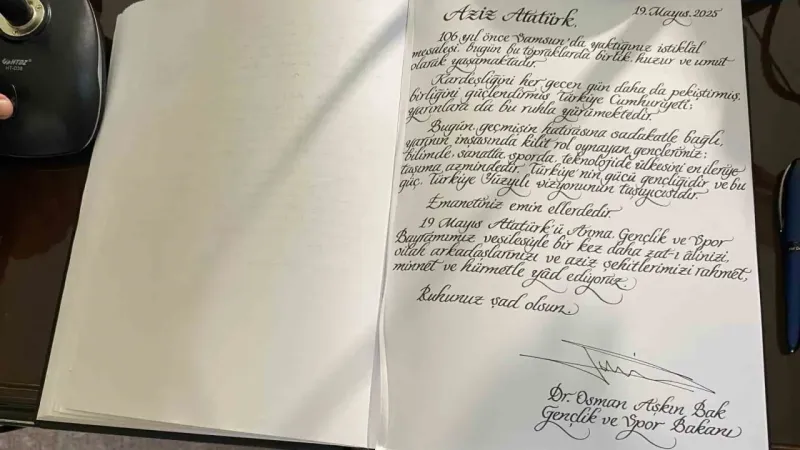 HTDZ
HT-D38
Aziz Atatürk,
19. Mayıs. 2025
106 yıl önce Samsun'da yaktığınız istiklâl
meşalesi, bugün bu topraklarda birlik, huzur ve umut
olarak yaşamaktadır.
Kardeşliğini her geçen gün daha da pekiştirmiş,
birliğini güçlendirmiş Türkiye Cumhuriyeti;
yarınlara da bu ruhla yürümektedir.
Bugün, geçmişin hatırasına sadakatle bağlı,
yarının inşasında kilit rol oynayan gençlerimiz;
bilimde, sanatta, sporda, teknolojide ülkesini en ileriye
taşıma azmindedir. Türkiye'nin gücü gençliğidir ve bu
güç, Türkiye Yüzyılı vizyonunun taşıyıcısıdır.
Emanetiniz emin ellerdedir.
19 Mayıs Atatürk'ü Anma, Gençlik ve Spor
Bayramımız vesilesiyle bir kez daha zat-ı âlinizi,
silah arkadaşlarınızı ve aziz şehitlerimizi rahmet,
minnet ve hürmetle yâd ediyoruz.
Ruhunuz şad olsun.
Dr. Osman Aşkın Bak
Gençlik ve Spor Bakanı